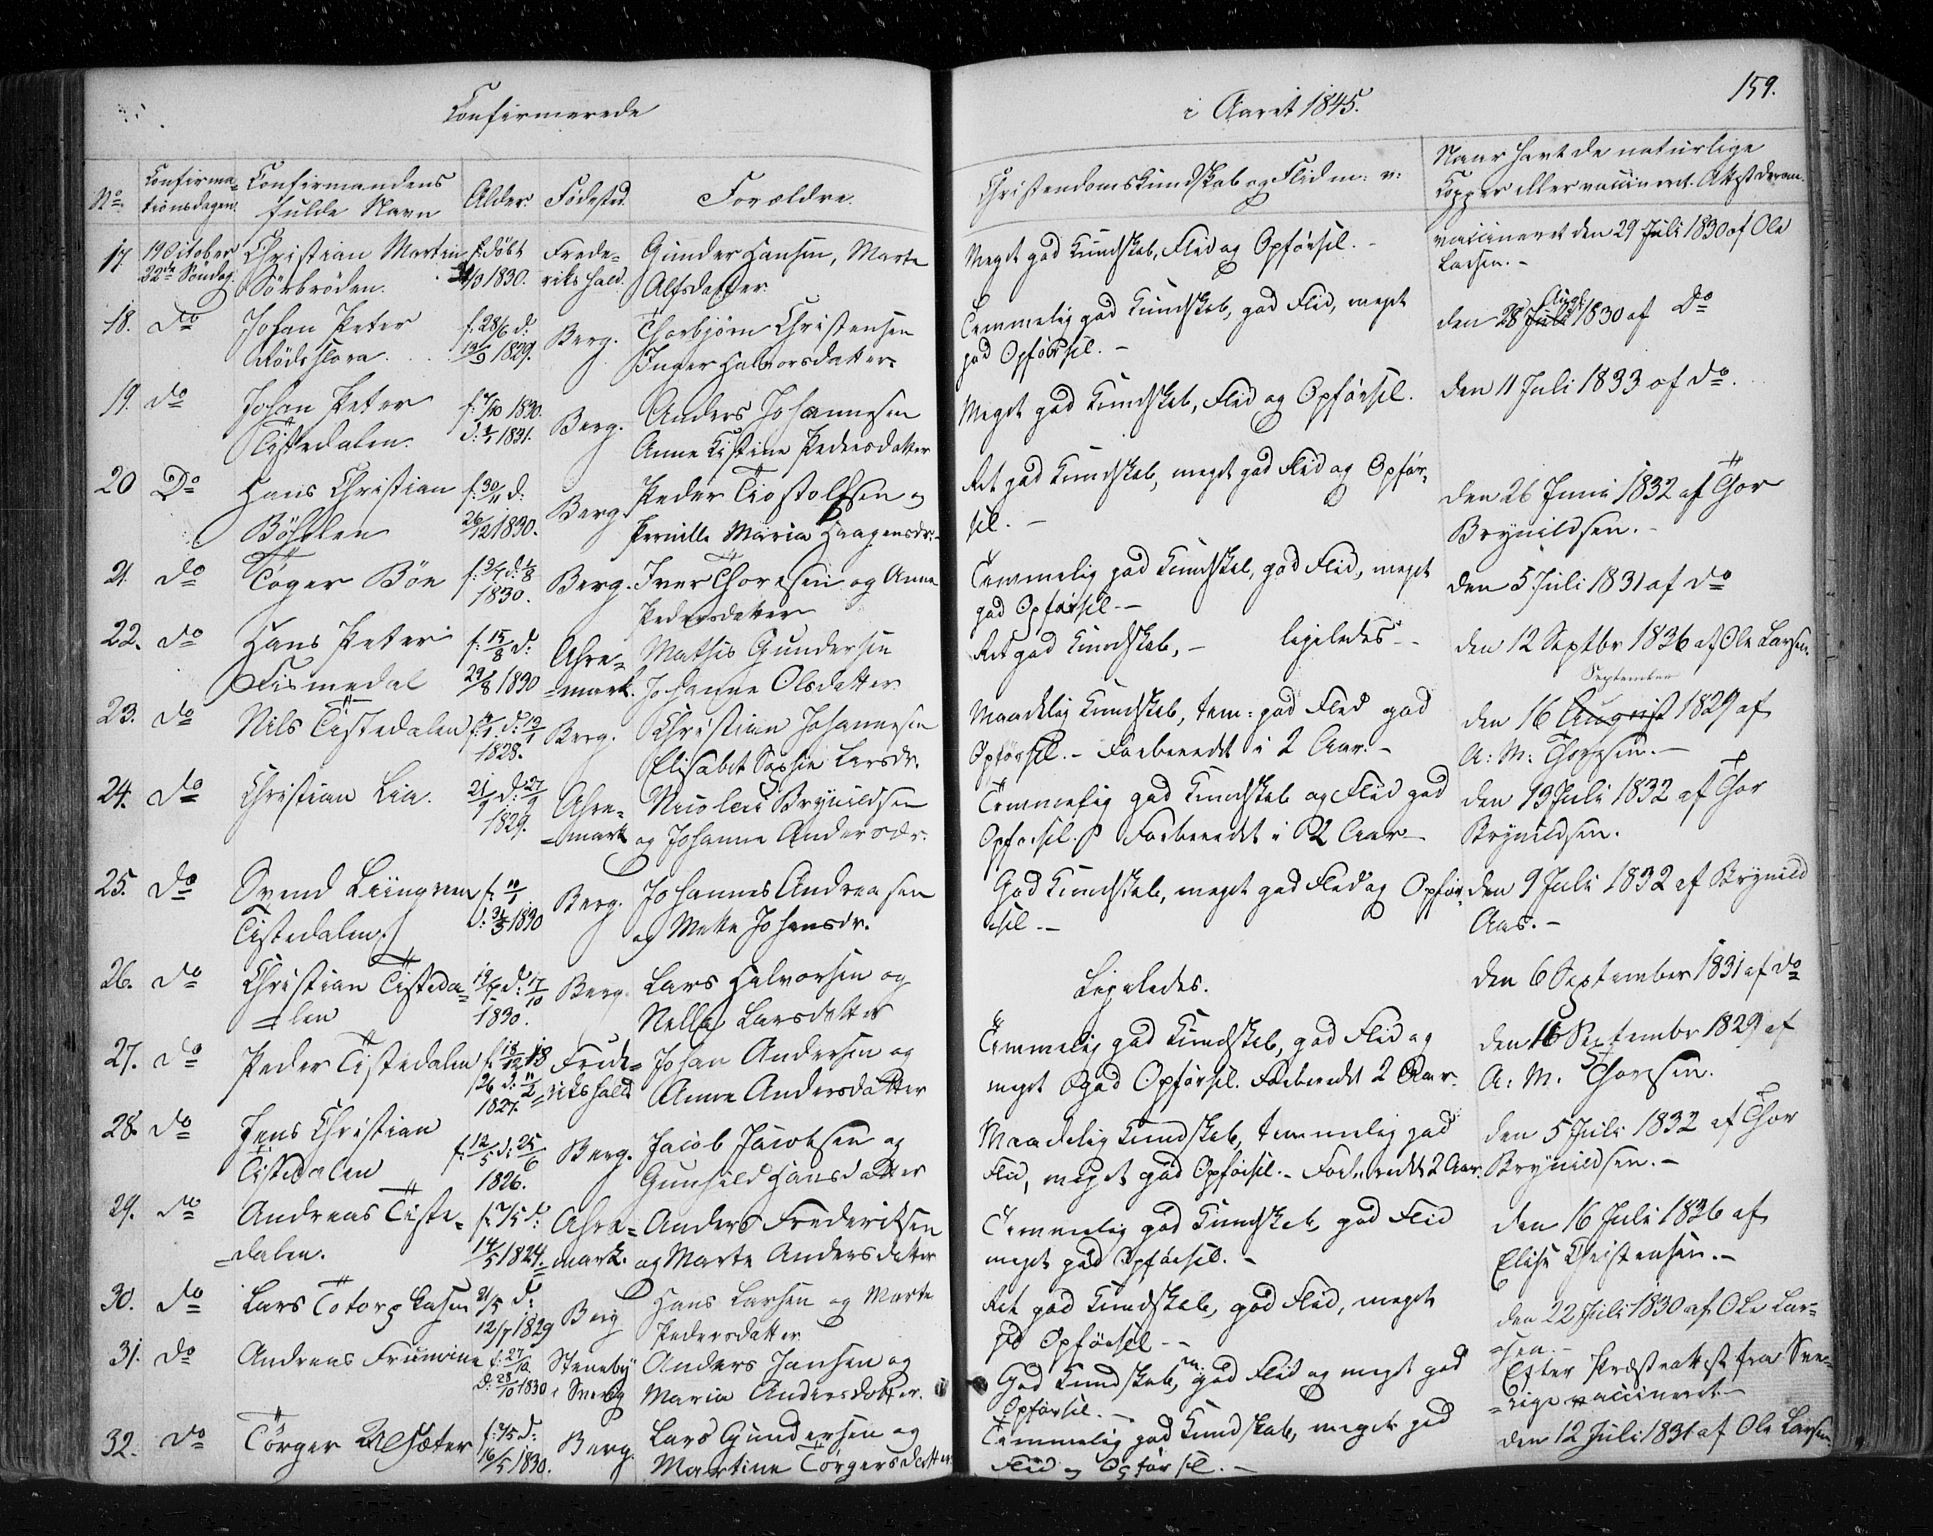 Confirmerede
i Aaret 1845.
159.
No
Confirma-
tionsdagen.
Confirmandens
fulde Navn
Alder
Fødested
Forældre.
Christendomskundskab og Flid m: v:
Naar havt de naturlige
Kopper eller vaccineret. Attest derom.
17. 19 October
22de Søndag.
Christian Martin
Sørbrøden.
f. døbt
1830.
Frede-
rikshald.
Gunder Hansen, Marte
Alfsdatter
Meget god Kundskab, Flid og Opførsel. -
vaccineret den 29 Juli 1830 af Ole
Larsen. -
18. Do
Johan Peter
Rødsflora.
f. 28/6 d:
13/9 1829.
Berg.
Thorbjørn Christensen
Inger Halvorsdatter
Temmelig god Kundskab, god Flid, meget
god Opførsel. -
den 28 Juli Aug: 1830 af Do
19. do
Johan Peter
Tistedalen.
f: 7/10 1830.
d: 1831.
Berg.
Anders Johannesen
Anne Kistine Pedersdatter
Meget god Kundskab, Flid og Opførsel.
den 11 Juli 1833 af do.
20 Do
Hans Christian
Böhlen
f: 30/11 d:
26/12 1830.
Berg
Peder Tiostolfsen og
Pernille Maria Haagensdr:
Ret god Kundskab, meget god Flid og Opfør-
sel. -
den 26 Juni 1832 af Thor
Brynildsen. -
21. do
Toger Böe
1830.
Berg.
Iver Thoresen og Anne
Pedersdatter
Temmelig god Kundskab, god Flid, meget
god Opførsel. -
den 5 Juli 1831 af do
22. do
Hans Peter
Fismedal
f: 15/8 d:
29/8 1830
Ahre-
-mark.
Mathis Gundersen
Johanne Olsdatter
Ret god Kundskab, - ligeledes -
den 12 Septbr 1836 af Ole Larsen.
23. do
Nils Tistedalen
1828.
Berg.
Christian Johannesen
Elisabet Sophie Larsdr.
Maadelig Kundskab, tem: god Flid god
Opførsel. - Forberedt i 2 Aar. -
den 16 August September 1829 af
A: M: Thoresen. -
24. do
Christian Lia.
21/9 d: 27/9
1829.
Ahre-
-mark
Nicolai Brynildsen
og Johanne Andersdr:
Temmelig god Kundskab og Flid god
Opførsel. Forberedt i 2 Aar -
den 13 Juli 1832 af Thor
Brynildsen.
25. do
Svend
Tistedalen.
d: 1830
Berg.
Johannes Andreasen
og Mette Johansdr.
God Kundskab, meget god Flid og Opfør-
sel. -
den 9 Juli 1832 af Brynild
Aas. -
26. do
Christian Tisteda-
-len
d: 17/10
1830.
Berg.
Lars Halvorsen og
Nella Larsdatter
Ligeledes.
den 6 September 1831 af do
27. do
Peder Tistedalen
f: 18/12 18
26 d: 11/2
1827.
Frede-
rikshald
Johan Andersen og
Anne Andersdatter
Temmelig god Kundskab, god Flid og
meget god Opførsel. Forberedt 2 Aar.
den 16 September 1829 af
A: M. Thoresen.
28. do
Jens Christian
Tistedalen
f: 12/5 d: 25/6
1826.
Berg.
Jacob Jacobsen og
Gunhild Hansdatter
Maadelig Kundskab, temmelig god
Flid, meget god Opførsel. - Forberedt 2 Aar.
den 5 Juli 1832 af Thor
Brynildsen. -
29. do
Andreas Tiste-
-dalen.
f: 7/5 d:
14/5 1824.
Ahre-
-mark.
Anders Frederiksen
og Marte Andersdatter
Temmelig god Kundskab, god Flid
meget god Opførsel. -
den 16 Juli 1826 af
Elise Christensen. -
30. do
Lars Totorpkasen
d:
12/7 1829
Berg
Hans Larsen og Marte
Pedersdatter
Ret god Kundskab, god Flid, meget
god Opførsel -
den 22 Juli 1830 af Ole Lar-
-sen. -
31. do
Andreas
f: 27/10
d: 28/10 1830
Steneby
i Sverig
Anders Jansen og
Maria Andersdatter.
God Kundskab, m. god Flid og meget god
Opførsel. -
Efter Præsteattest fra Sve-
-rige vaccineret -
32. do
Törger Ulsæter
d:
16/5 1830.
Berg.
Lars Gundersen og
Martine Törgersdatter
Temmelig god Kundskab, meget god
Flid og Opførsel. -
den 12 Juli 1831 af Ole Larsen.